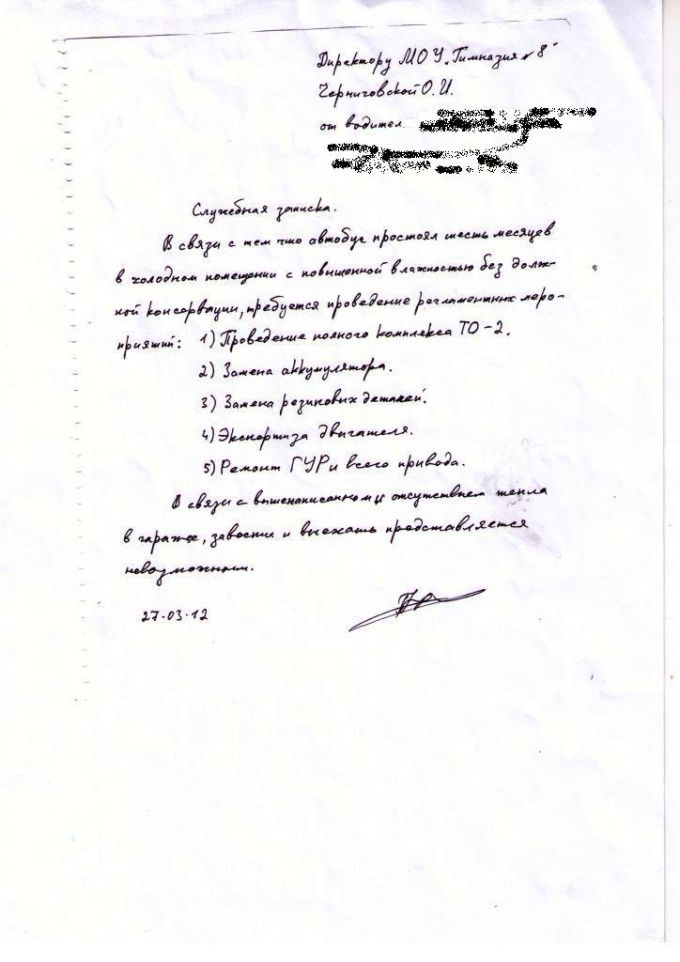 Директору МОУ „Гимназия №8"
Черниговской О.И.
от водител
Служебная записка.
В связи с тем что автобус простоял шесть месяцев
в холодном помещении с повышенной влажностью без долж-
ной консервации, требуется проведение регламентных меро-
приятий: 1) Проведение полного комплекса ТО-2.
2) Замена аккумулятора.
3) Замена резиновых деталей.
4) Экспертиза двигателя.
5) Ремонт ГУР и всего привода.
В связи с вышенаписанным и отсутствием тепла
в гараже, завести и выехать представляется
невозможным.
27-03-12